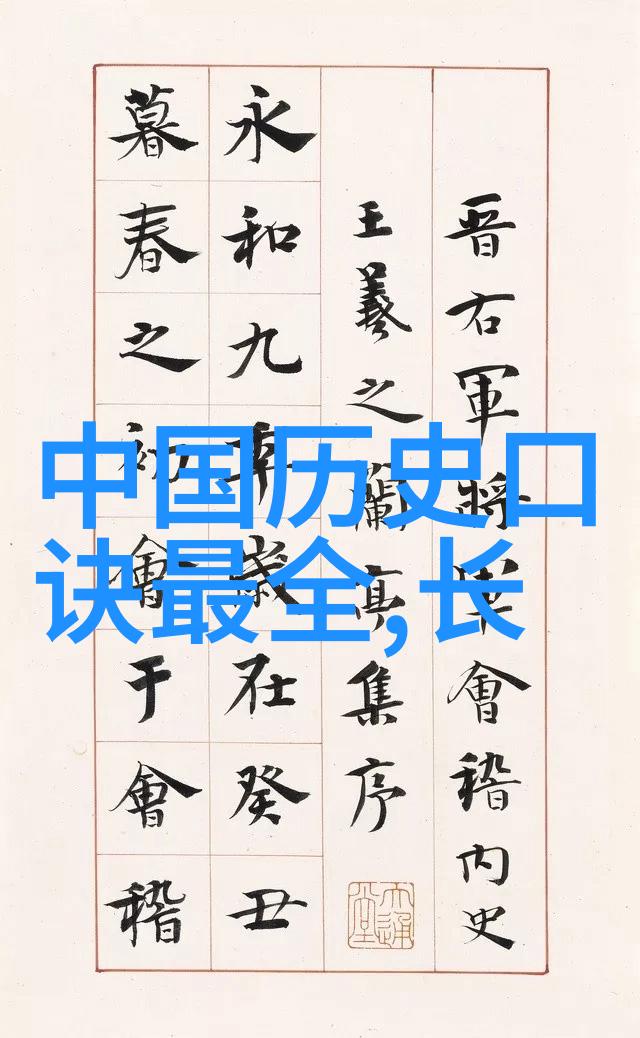 晋右軍將軍會稽内史
王羲之蘭亭集序
永和九年歲在癸丑
暮春之初會于會稽
中国历史口
诀最全,长